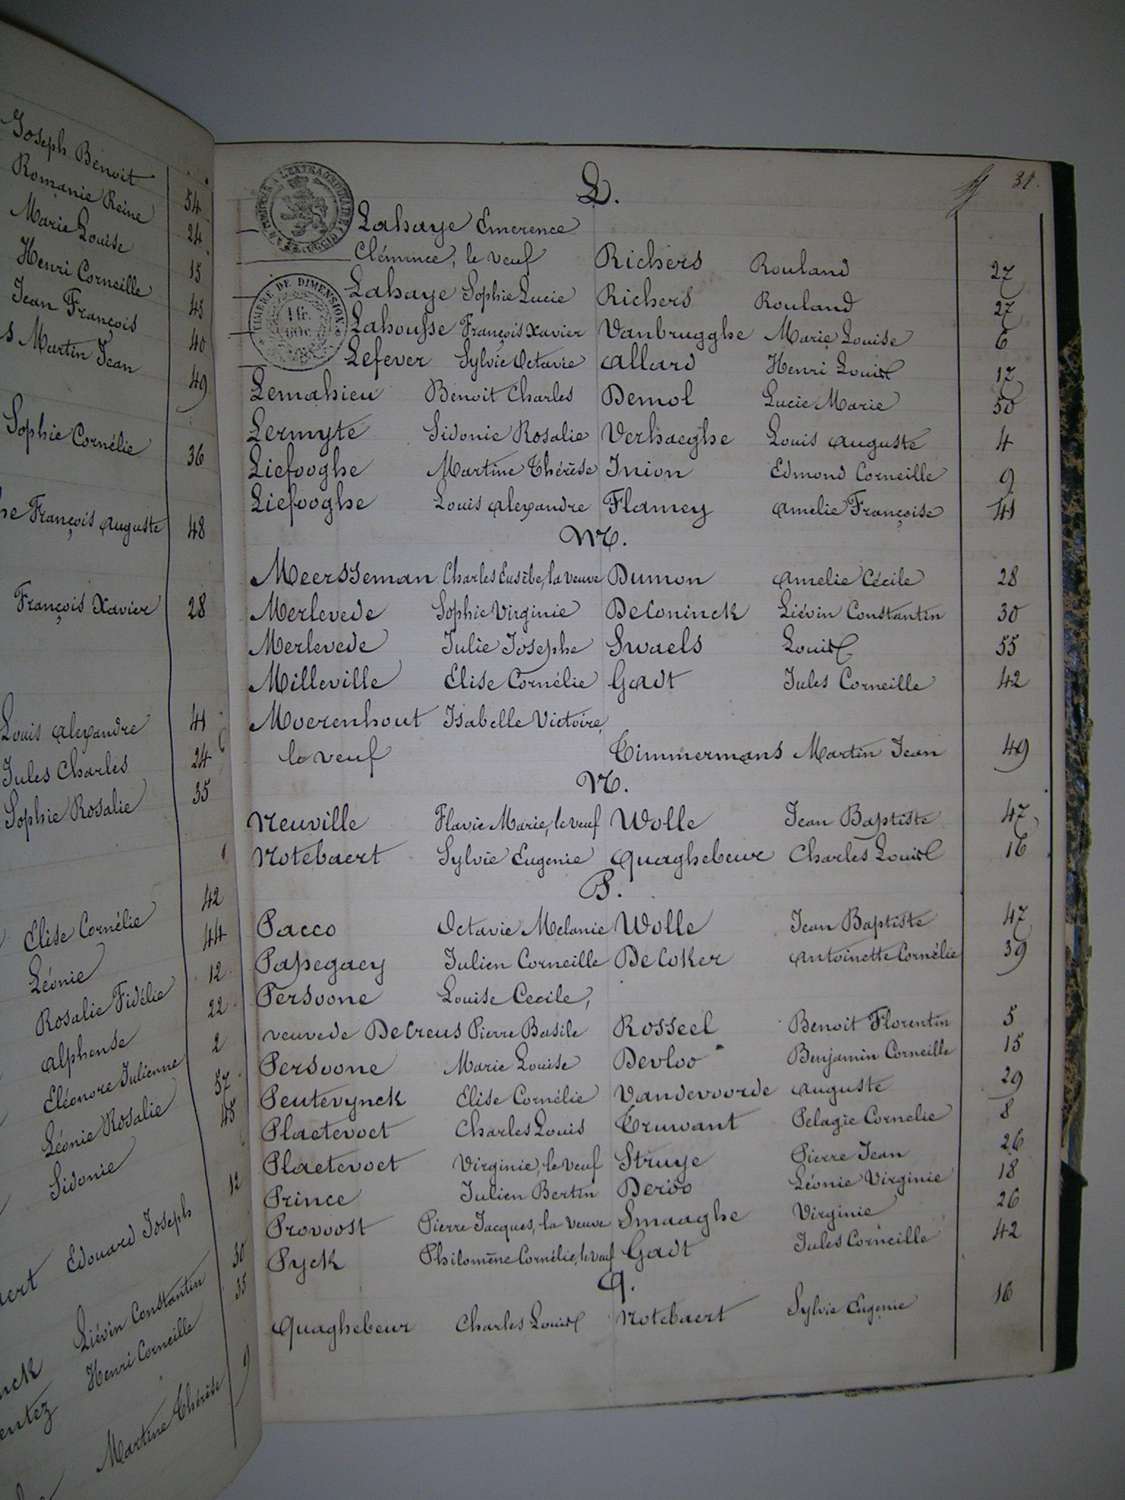 Joseph Benoit 54
Romanie Reine 24
Marie Louise 15
Henri Corneille 45
Jean François 40
Martin Jean 49
Sophie Cornélie 36
François Auguste 48
François Xavier 28
Louis Alexandre 41
Jules Charles 24
Sophie Rosalie 35
42
Elise Cornélie 44
Léonie 12
Rosalie Fidélie 22
Alphonse 2
Eléonore Julienne 57
Léonie Rosalie 45
Sidonie
12
Edouard Joseph
30
Liévin Constantin 35
Henri Corneille
9
Martine Thérèse
31.
L.
Lahaye Emerence
Clémence, le veuf Richers Rouland 27
Lahaye Sophie Lucie Richers Rouland 27
TIMBRE DE DIMENSION
Lahousse François Xavier Vanbrugghe Marie Louise 6
Lefever Sylvie Octavie Allard Henri Louis 17
Lemahieu Benoit Charles Demol Lucie Marie 50
Lermyte Sidonie Rosalie Verhaeghe Louis Auguste 4
Liefooghe Martine Thérèse Inion Edmond Corneille 9
Liefooghe Louis Alexandre Flamey Amelie Françoise 41
M.
Meersseman Charles Eusèbe, la veuve Dumon Amelie Cécile 28
Merlevede Sophie Virginie DeConinck Liévin Constantin 30
Merlevede Julie Josephe Swaels Louis 55
Milleville Elise Cornélie Gadt Jules Corneille 42
Moerenhout Isabelle Victoire,
le veuf Timmermans Martin Jean 49
N.
Neuville Flavie Marie, le veuf Wolle Jean Baptiste 47
Notebaert Sylvie Eugenie Quaghebeur Charles Louis 16
P.
Pacco Octavie Melanie Wolle Jean Baptiste 47
Papegaey Julien Corneille DeCoker Antoinette Cornélie 39
Persoone Louise Cecile,
veuve de DeCreus Pierre Basile Rosseel Benoit Florentin 5
Persoone Marie Louise Devloo Benjamin Corneille 15
Peutevynck Elise Cornélie Vandevoorde Auguste 29
Plaetevoet Charles Louis Truwant Pélagie Cornelie 8
Plaetevoet Virginie, le veuf Struye Pierre Jean 26
Prince Julien Bertin Deroo Léonie Virginie 18
Provoost Pierre Jacques, la veuve Smaaghe Virginie 26
Pyck Philomène Cornélie, le veuf Gadt Jules Corneille 42
Q.
Quaghebeur Charles Louis Notebaert Sylvie Eugenie 16